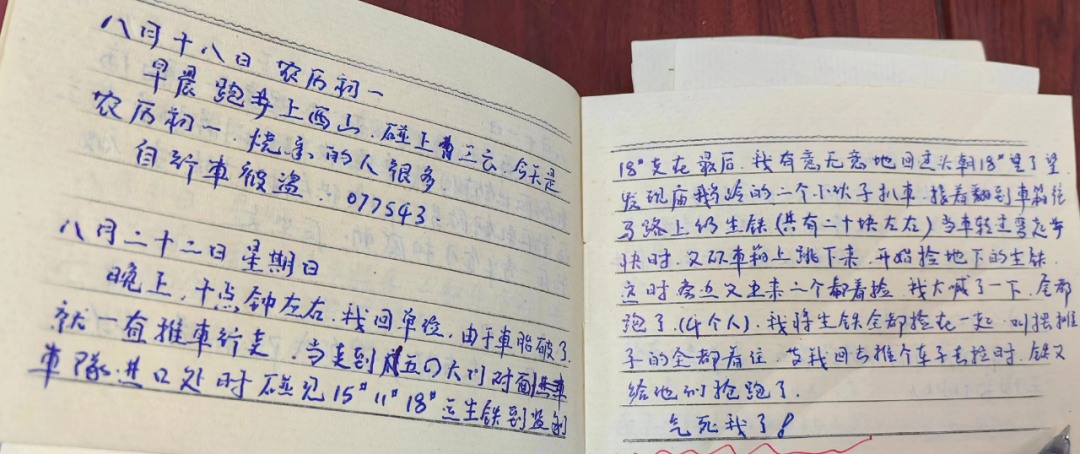 八月十八日 农历初一
早晨跑步上西山.碰上曹三云.今天是
农历初一.烧香的人很多.
自行車被盗.077543
八月二十二日 星期日
晚上,十点钟左右.我回单位,由于車胎破了.
就一直推車行走.当走到五〇大门对面
車隊.进口处时碰见15#11#18#运生铁到
18#走在最后.我有意无意地回过头朝18#望了望
发现庙鹅岭的二个小伙子扒車.接着翻到車箱往
马路上仍生铁(共有二十块左右)当車转过弯起步
快时.又从車箱上跳下来.开始捡地下的生铁.
这时旁边又出来二个帮着捡.我大喊了一下.全都
跑了.(4个人).我将生铁全都捡在一起.叫摆摊
子的全都看住.当我回去推个车子去拉时.铁又
给他们抢跑了.
气死我了!